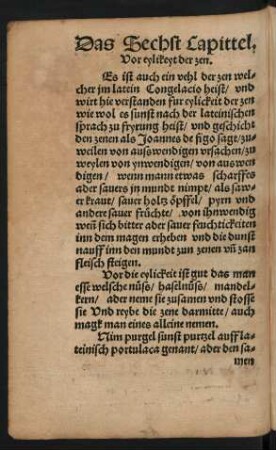 Das Sechst Capittel.
Vor eylikeyt der zen.
Es ist auch ein vehl der zen wel-
cher jm latein Congelacio heist/ vnd
wirt hie verstanden fur eylickeit der zen
wie wol es sunst nach der lateinischen
sprach zu fryrung heist/ vnd geschicht
den zenen als Joannes de figo sagt/zu-
weilen von außwendigen vrsachen/zu
weylen von ynwendigen/ von auswen
digen/ wenn mann etwas scharffes
ader sauers jn mundt nimpt/ als saw-
er kraut/ sauer holtz öpffel/ pyrn vnd
andere sauer früchte/ von jhnwendig
weñ sich bitter ader sauer feuchtickeiten
inn dem magen erheben vnd die dunst
nauff inn den mundt zun zenen vñ zan
fleisch steigen.
Vor die eylickeit ist gut das man
esse welsche nüß/ haselnüß/ mandel-
kern/ ader neme sie zusamen vnd stosse
sie Vnd reybe die zene darmitte/ auch
magk man eines alleine nemen.
Nim purgel sunst purtzel auff la-
teinisch portulaca genant/ ader den sa-
men